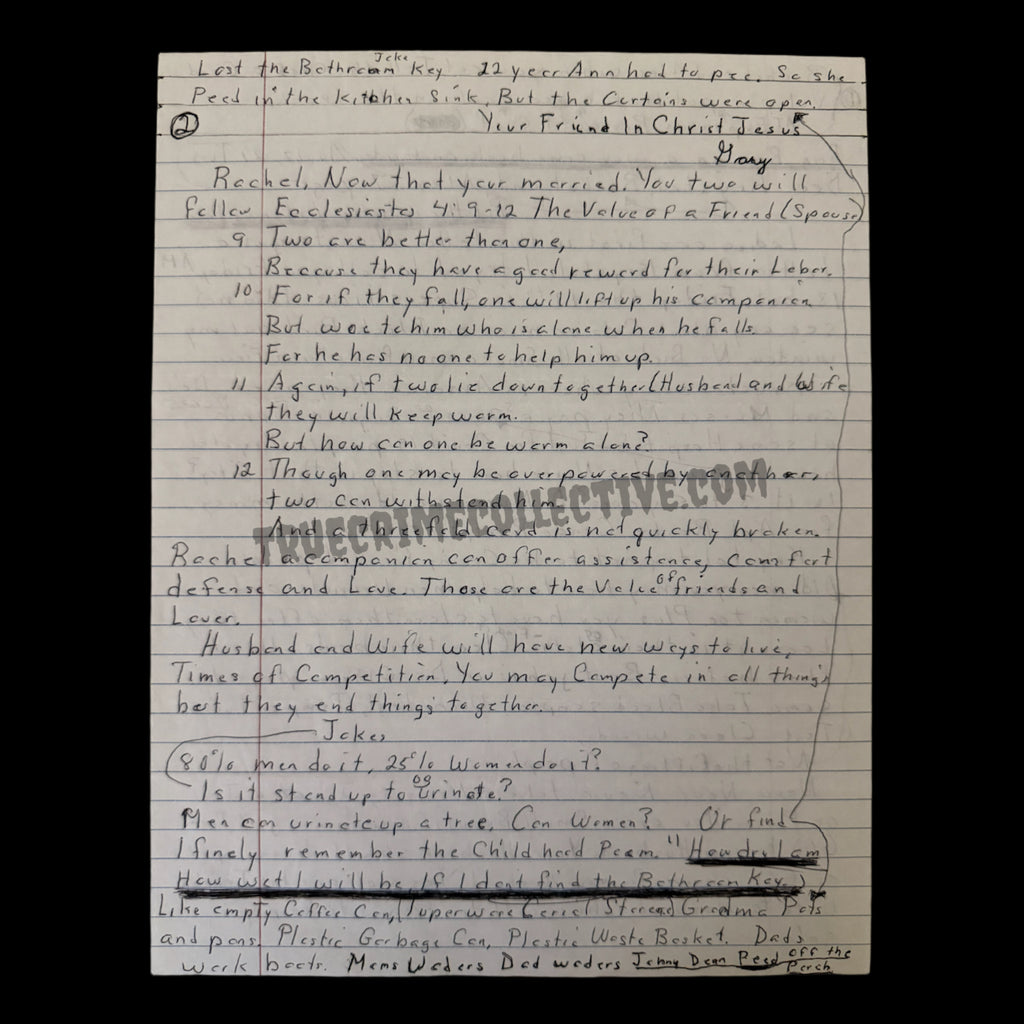 Lost the Bathroom Joke Key 22 year Ann had to pee. So she
Peed in the Kitchen Sink, But the Curtains were open.
2 Your Friend In Christ Jesus
Gary
Rachel, Now that your married. You two will
follow Ecclesiastes 4:9-12 The Value of a Friend (Spouse)
9 Two are better then one,
Because they have a good reward for their Labor.
10 For if they fall, one will lift up his companion
But woe to him who is alone when he falls.
For he has no one to help him up.
11 Again, if two lie down together (Husband and Wife
they will keep warm.
But how can one be warm alone?
12 Though one may be overpowered by another,
two can withstand him.
And a threefold cord is not quickly broken.
TRUECRIMECOLLECTIVE.COM
Rachel a companion can offer assistence, comfort
defense and Love. Those are the Value of friends and
Lover.
Husband and Wife will have new ways to live,
Times of Competition, You may Compete in all things
but they end things together.
Jokes
80% men do it, 25% Women do it?
Is it stand up to urinate?
Men can urinate up a tree. Can Women? Or find
I finely remember the Child hood Poem. "How dry I am
How wet I will be, If I dont find the Bathroom Key.)
Like empty Coffee Can, Grandma Pots
and pans. Plastic Garbage Can, Plastic Waste Basket. Dads
work boots. Moms Waders Dad waders Jenny Dean Peed off the
Porch